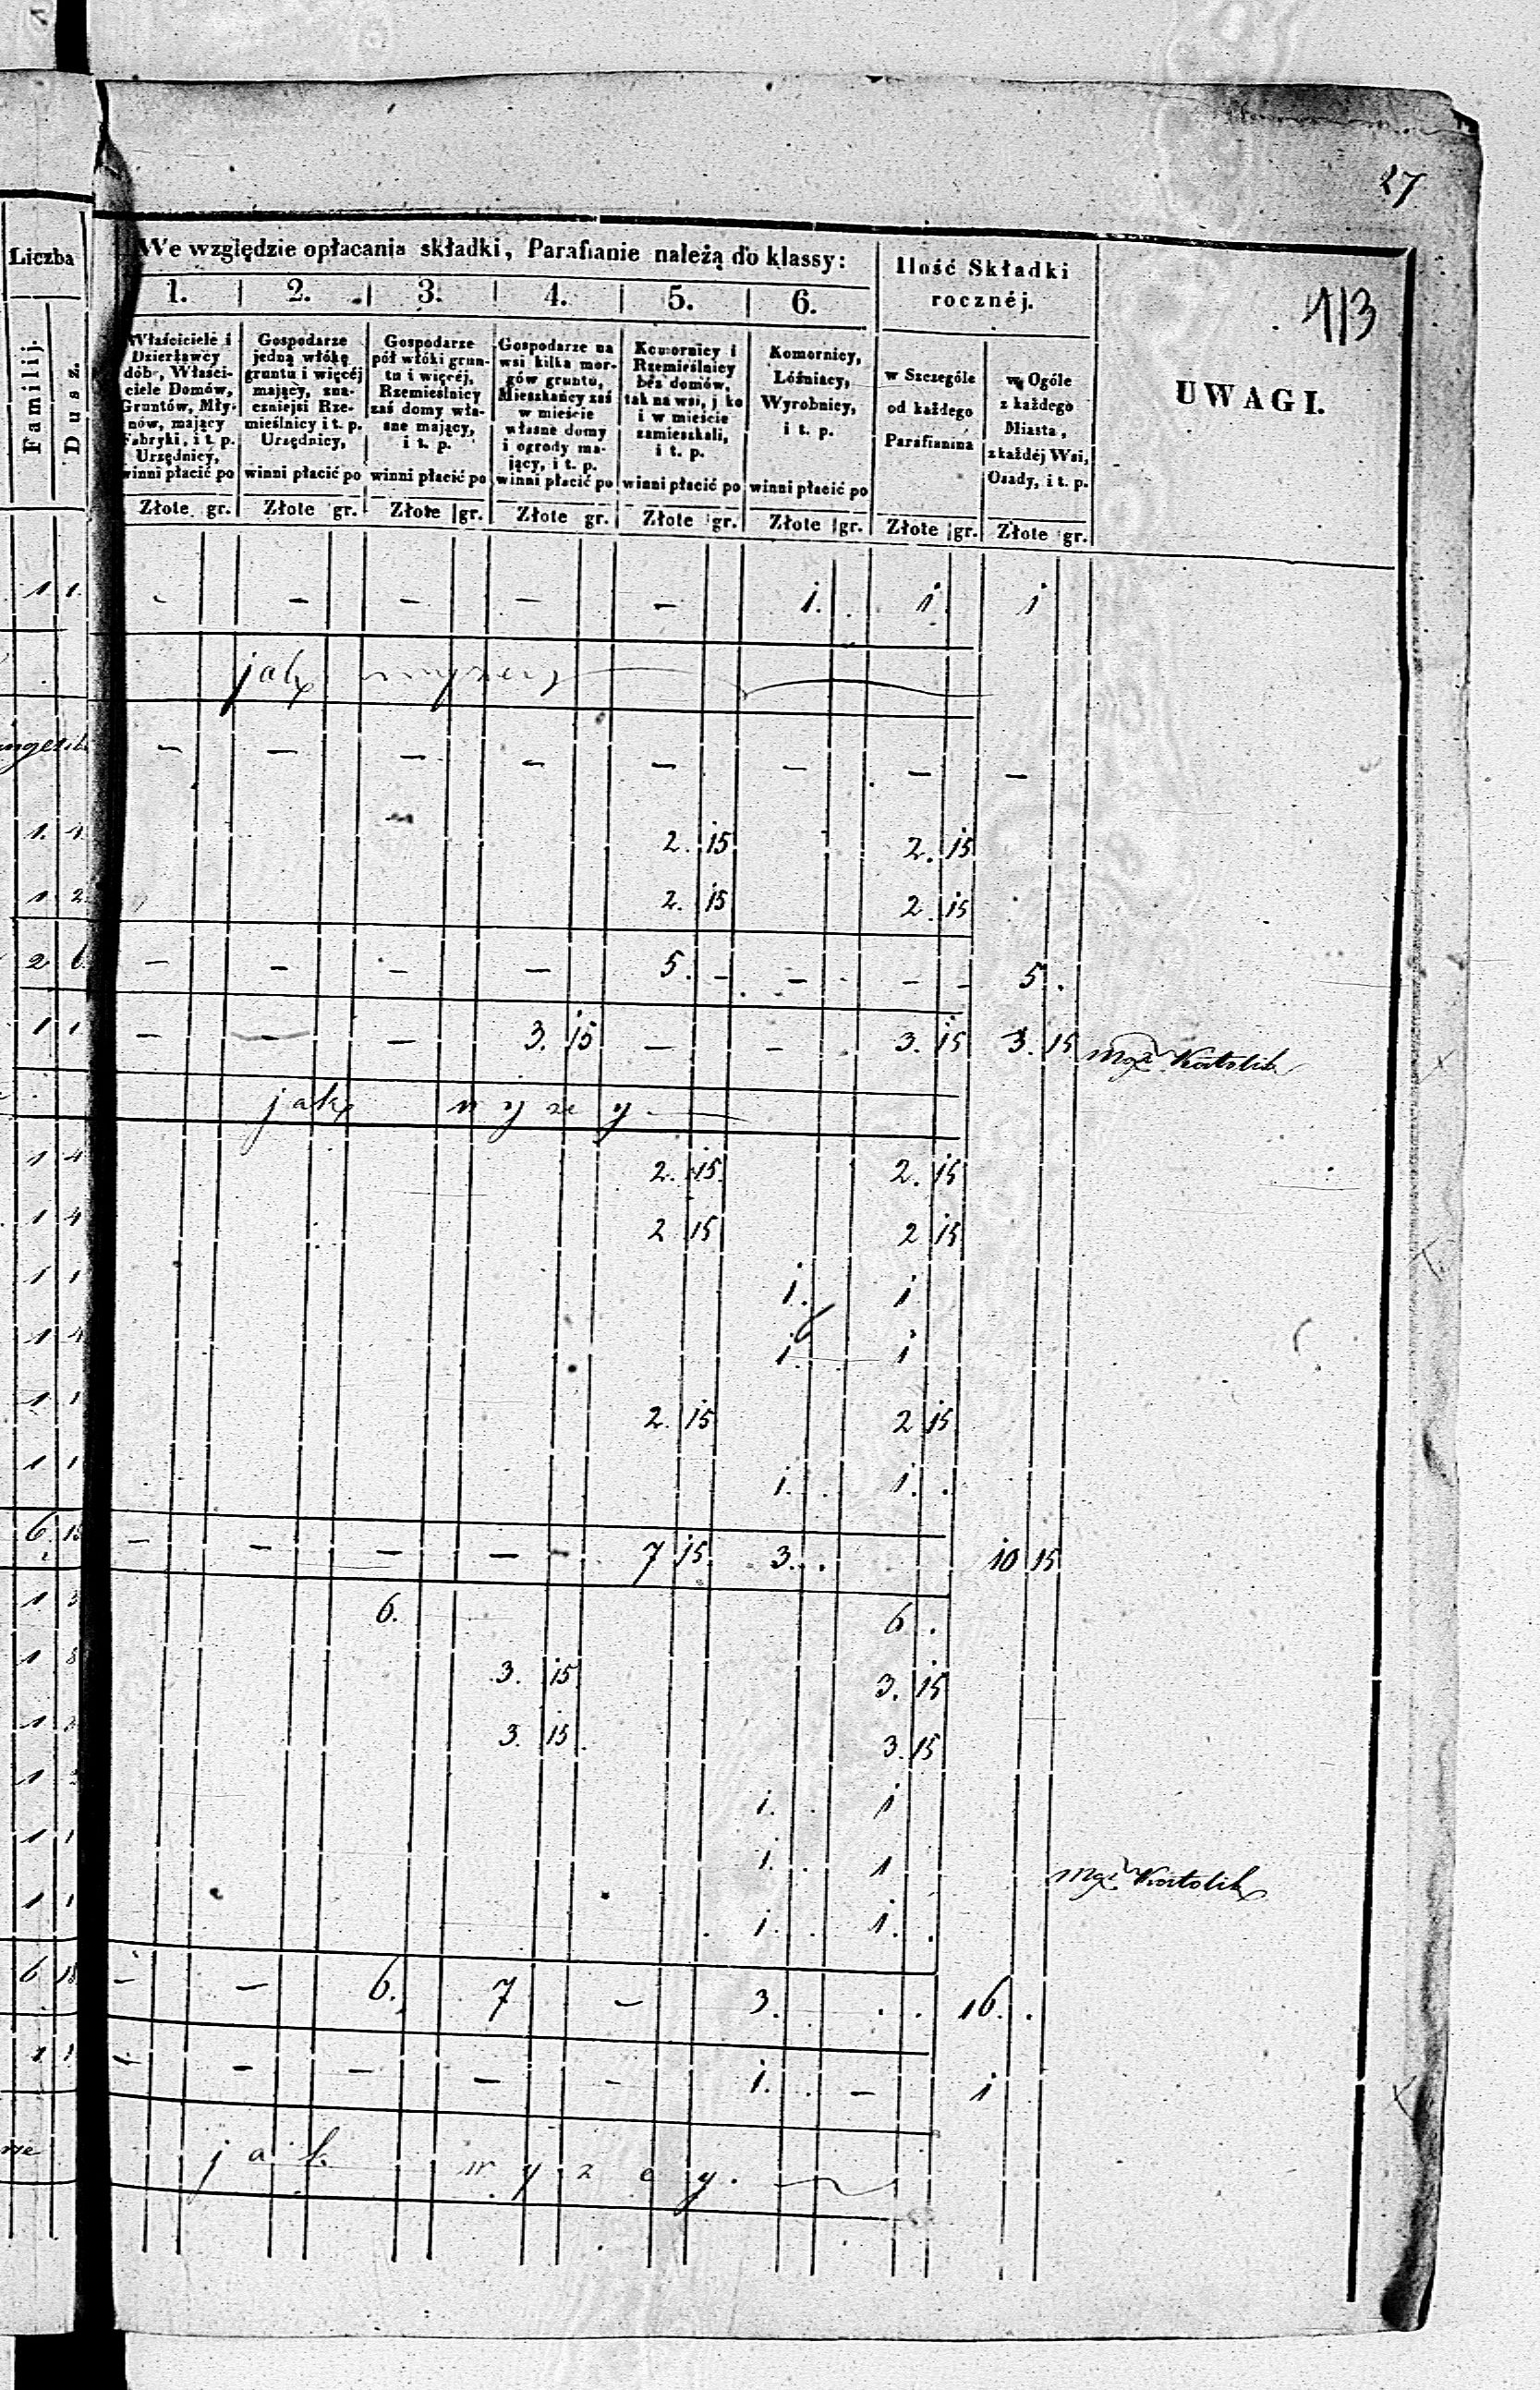 27
1/3
Liczba
Familij.
Dusz.
We względzie opłacania składki, Parafianie należą do klassy:
Ilość Składki
rocznéj.
UWAGI.
1. 2. 3. 4. 5. 6.
Właściciele i
Dzierżawcy
dóbr, Właści-
ciele Domów,
Gruntów, Mły-
nów, mający
Fabryki, i t. p.
Urzędnicy,
winni płacić po
Gospodarze
jedną włókę
gruntu i więcéj
mający, zna-
czniejsi Rze-
mieślnicy i t. p.
Urzędnicy,
winni płacić po
Gospodarze
pół włóki grun-
tu i więcéj,
Rzemieślnicy
zaś domy wła-
sne mający,
i t. p.
winni płacić po
Gospodarze na
wsi kilka mor-
gów gruntu,
Mieszkańcy zaś
w mieście
własne domy
i ogrody ma-
jący, i t. p.
winni płacić po
Komornicy i
Rzemieślnicy
bez domów,
tak na wsi, j ko
i w mieście
zamieszkali,
i t. p.
winni płacić po
Komornicy,
Lóźniacy,
Wyrobnicy,
i t. p.
winni płacić po
w Szczególe
od każdego
Parafianina
w Ogóle
z każdego
Miasta,
z każdéj Wsi,
Osady, i t. p.
Złote gr. Złote gr. Złote gr. Złote gr. Złote gr. Złote gr. Złote gr. Złote gr.
1 1. - - - - - 1. . 1. 1
jak wyzey
- - - - - - - -
1. 1. 2. 15 2. 15
1 2. 2. 15 2. 15
2 6 - - - - 5. - - - - 5 .
1 1 - - - 3. 15 - - 3. 15 3. 15 Katolik
jak wyzey
1 4 2. 15 2. 15
1 4 2 15 2 15
1 1 1. 1
1 4 1. 1
1 1 2. 15 2 15
1 1 1. . 1. .
6 - - - - - 7 15 3. . 10 15
1 3 6. 6 .
1 8 3. 15 3. 15
1 3. 15 3. 15
1 1. . 1
1 1 1. . 1 Katolik
1 1 1. . 1. .
6 18 - - 6. 7 - 3. . . 16. .
1 1 - - - - - 1. . - 1
jak wyzey.